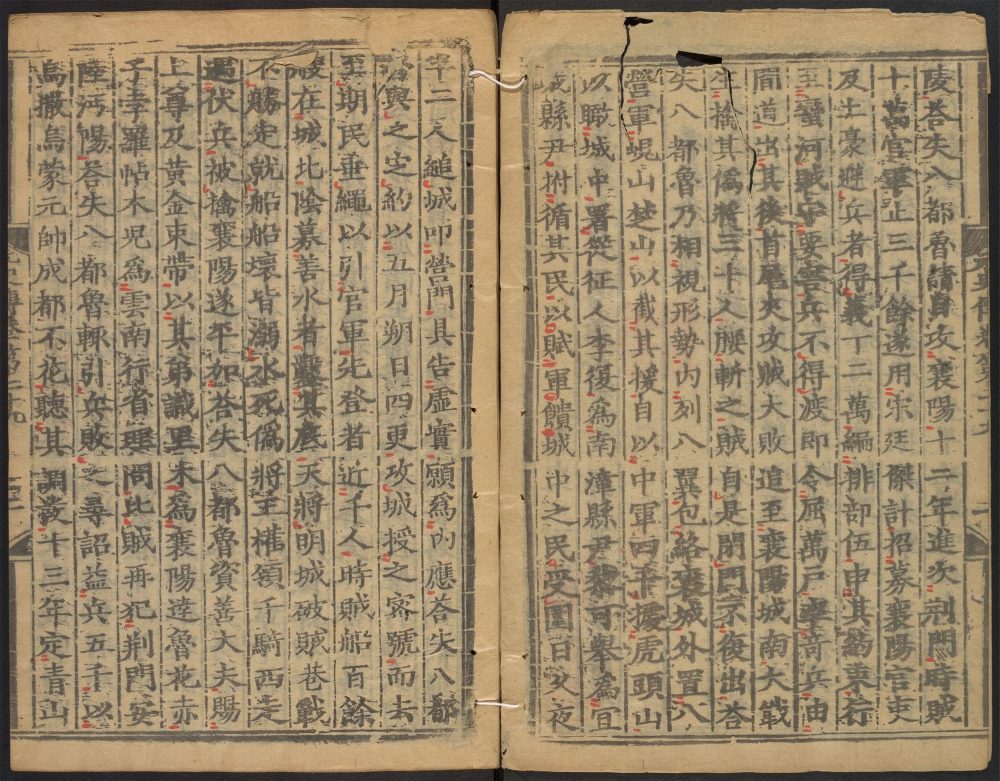 陵荅失八都魯請自攻襄陽十二年進次荆門時賊
十萬官軍止三千餘遂用宋廷傑計招募襄陽官吏
及土豪避兵者得義丁二萬編排部伍申其約束行
至蠻河賊守要害兵不得渡即令屈萬戶率奇兵由
間道出其後首尾夾攻賊大敗追至襄陽城南大戰
生擒其僞將三十人腰斬之賊自是閉門不復出荅
失八都魯乃相視形勢內列八翼包絡襄城外置八
營軍峴山楚山以截其援自以中軍四千據虎頭山
以瞰城中署從征人李復爲南漳縣尹黎可舉爲宜
城縣尹拊循其民以賦軍饋城中之民受圍日久夜
半二人縋城叩營門具告虛實願爲內應荅失八都
魯與之定約以五月朔日四更攻城授之密號而去
至期民垂繩以引官軍先登者近千人時賊船百餘
艘在城北陰募善水者鑿其底天將明城破賊巷戰
不勝走就船船壞皆溺水死僞將王權領千騎西走
遇伏兵被擒襄陽遂平加荅失八都魯資善大夫賜
上尊及黃金束帶以其弟識里木爲襄陽達魯花赤
子孛羅帖木兒爲雲南行省理問比賊再犯荆門安
陸沔陽荅失八都魯輒引兵敗之尋詔益兵五千以
烏撒烏蒙元帥成都不花聽其調發十三年定青山